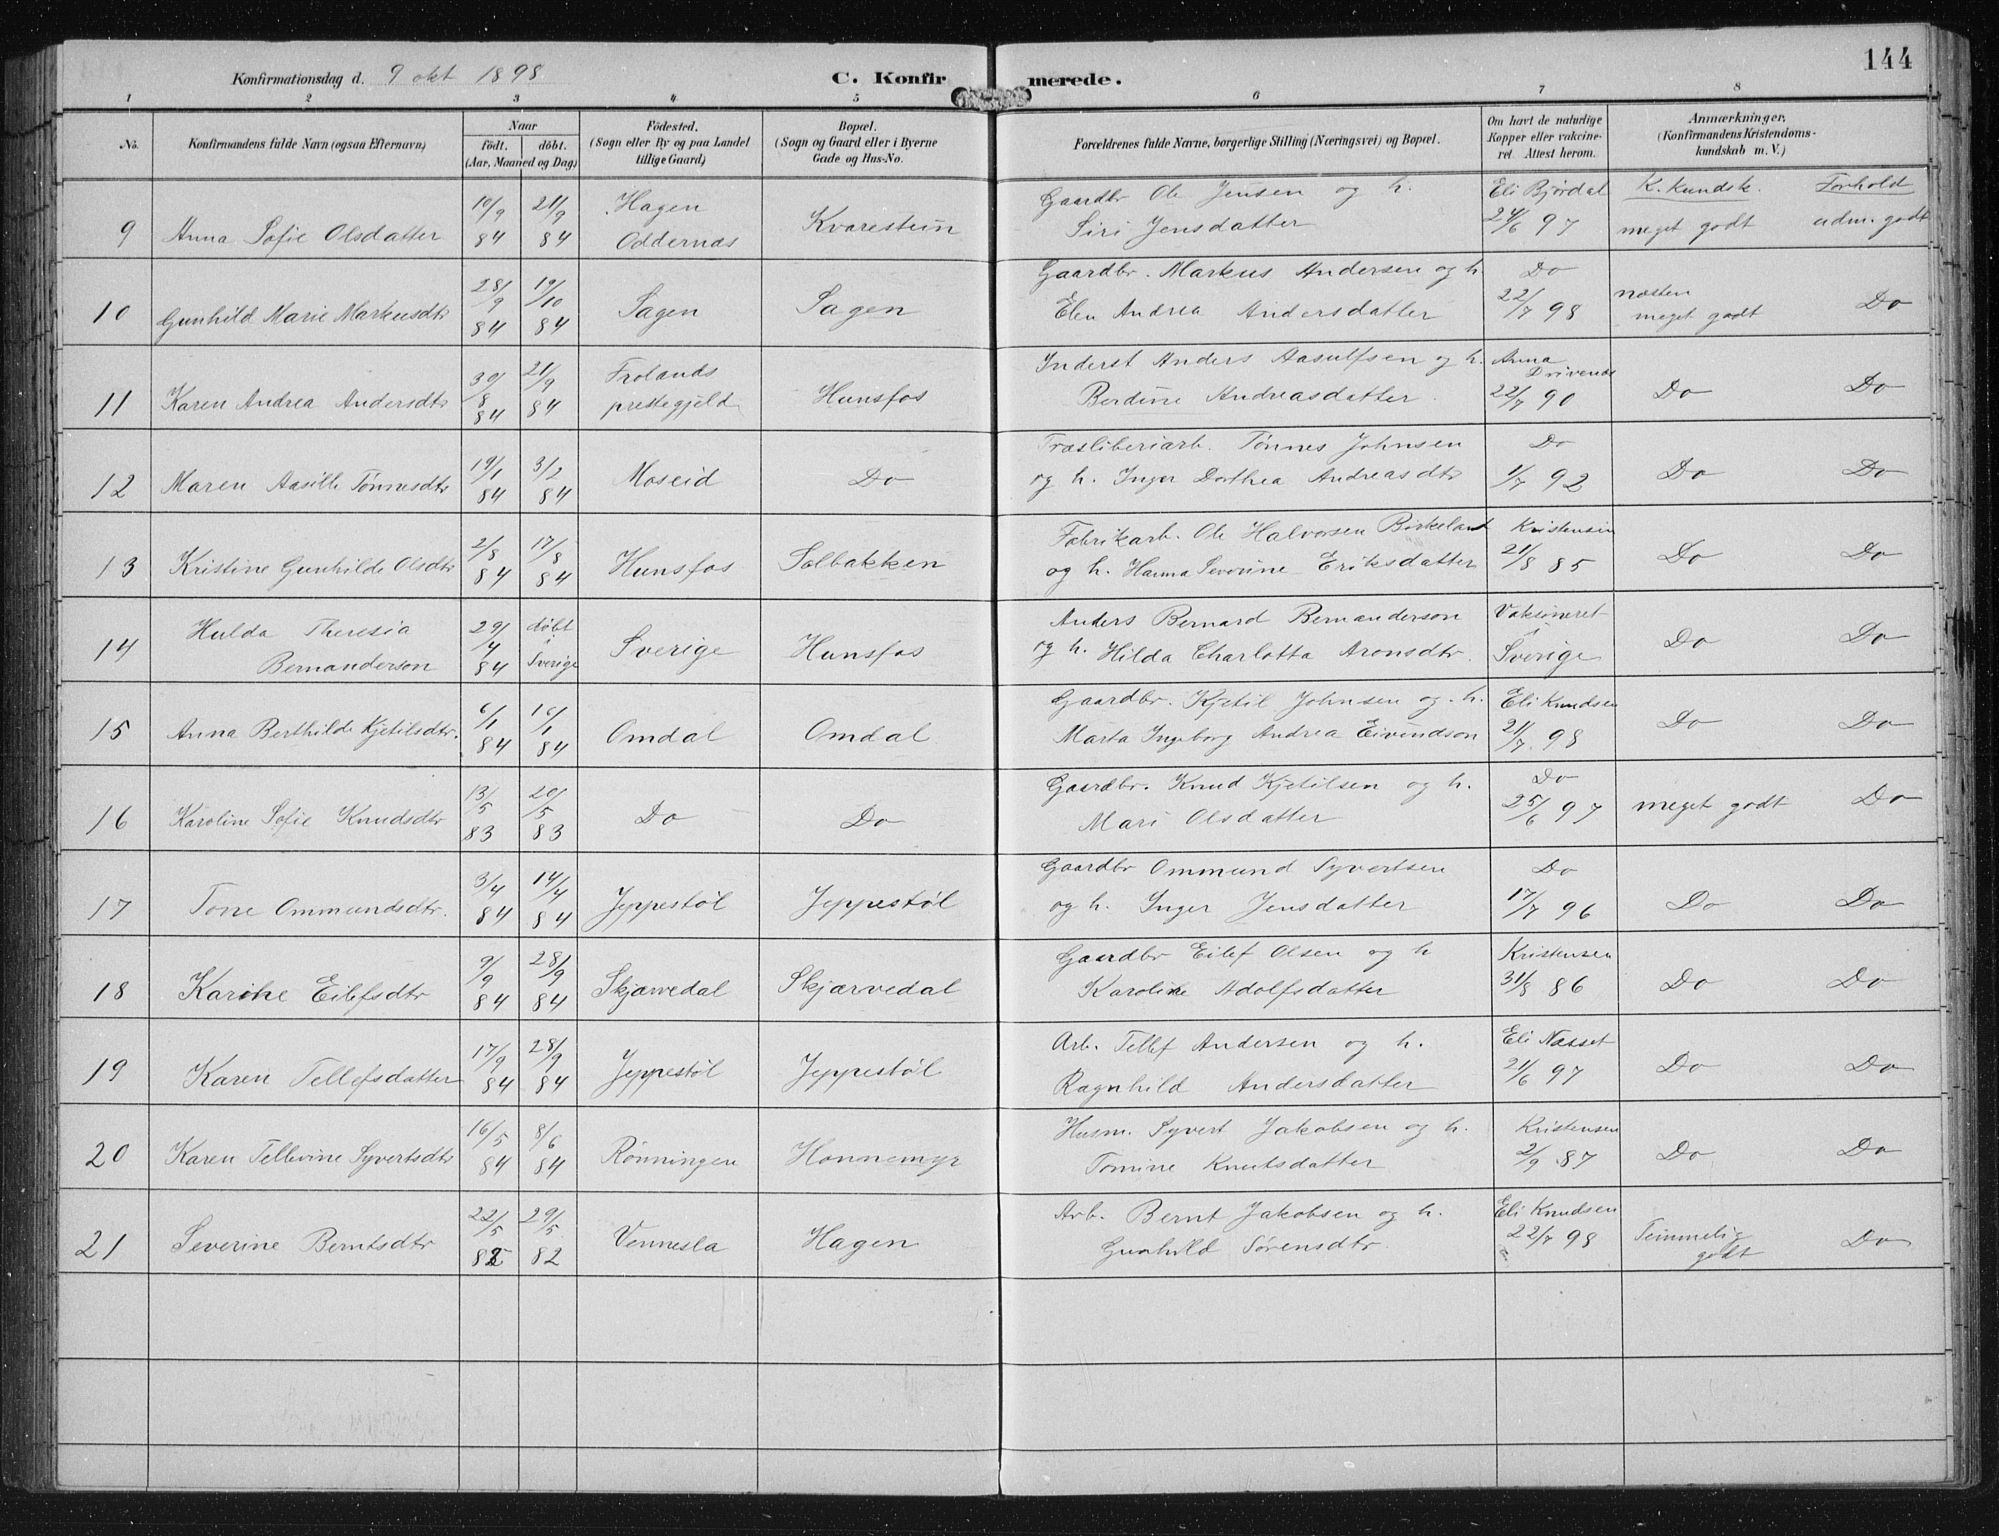 144
Konfirmationsdag d. 9 okt 1898
C. Konfirmerede.
1 2 3 4 5 6 7 8
No. Konfirmandens fulde Navn (ogsaa Efternavn). Naar født. døbt. (Aar, Maaned og Dag) Fødested. (Sogn eller By og paa Landet tillige Gaard) Bopæl. (Sogn og Gaard eller i Byerne Gade og Hus-No. Forældrenes fulde Navne, borgerlige Stilling (Næringsvei) og Bopæl. Om havt de naturlige Kopper eller vakcineret. Attest herom. Anmærkninger. (Konfirmandens Kristendomskundskab m. V.)
K. kundsk. Forhold
9 Anna Sofie Olsdatter 10/9 84 21/9 84 Hagen Oddernæs Kvarestein Gaardbr Ole Jensen og h. Siri Jensdatter Eli Bjørdal 24/6 97 meget godt udm. godt
10 Gunhild Marie Markusdtr 28/9 84 19/10 84 Sagen Sagen Gaardbr. Markus Andersen og h. Elen Andrea Andersdatter Do 22/7 98 næsten meget godt Do
11 Karen Andrea Andersdtr 30/8 84 21/9 84 Frolands prestegjeld Hunsfos Inderst Anders Aasulfsen og h. Berdine Andreasdatter Anna Drivenes 22/7 90 Do Do
12 Maren Aasille Tønnesdtr 19/1 84 3/2 84 Moseid Do Træsliberiarb. Tønnes Johnsen og h. Inger Dorthea Andreasdtr Do 1/7 92 Do Do
13 Kristine Gunhilde Olsdtr 2/8 84 17/8 84 Hunsfos Solbakken Fabrikarb. Ole Halvorsen Birkeland og h. Hanna Severine Eriksdatter Kristensen 21/8 85 Do Do
14 Hulda Theresia Bernanderson 29/4 84 døbt i Sverige Sverige Hunsfos Anders Bernard Bernanderson og h. Hilda Charlotta Aronsdtr. Vaksineret i Sverige Do Do
15 Anna Berthilde Kjetilsdtr. 6/1 84 16/1 84 Omdal Omdal Gaardbr. Kjetil Johnsen og h. Marta Ingeborg Andrea Eivendson Eli Knudsen 21/7 98 Do Do
16 Karoline Sofie Knudsdtr 13/5 83 20/5 83 Do Do Gaardbr. Knud Kjetilsen og h. Mari Olsdatter Do 25/6 97 meget godt Do
17 Tone Ommundsdtr. 3/4 84 14/4 84 Jeppestøl Jeppestøl Gaardbr Ommund Syvertsen og h. Inger Jensdatter Do 17/7 96 Do Do
18 Karine Eilefsdtr 9/9 84 28/9 84 Skjævedal Skjærvedal Gaardbr Eilef Olsen og h Karoline Adolfsdatter Kristensen 31/8 86 Do Do
19 Karen Tellefsdatter 17/9 84 28/9 84 Jeppestøl Jeppestøl Arb. Tellef Andersen og h. Ragnhild Andersdatter Eli Næsset 21/6 97 Do Do
20 Karen Tellevine Syvertsdtr 16/5 84 8/6 84 Rønningen Honnemyr Husm. Syvert Jakobsen og h. Tomine Knutsdatter Kristensen 2/9 87 Do Do
21 Severine Berntsdtr 22/5 82 29/5 82 Vennesla Hagen Arb. Bernt Jakobsen og h. Gunhild Sørensdtr. Eli Knudsen 22/7 98 Temmelig godt Do